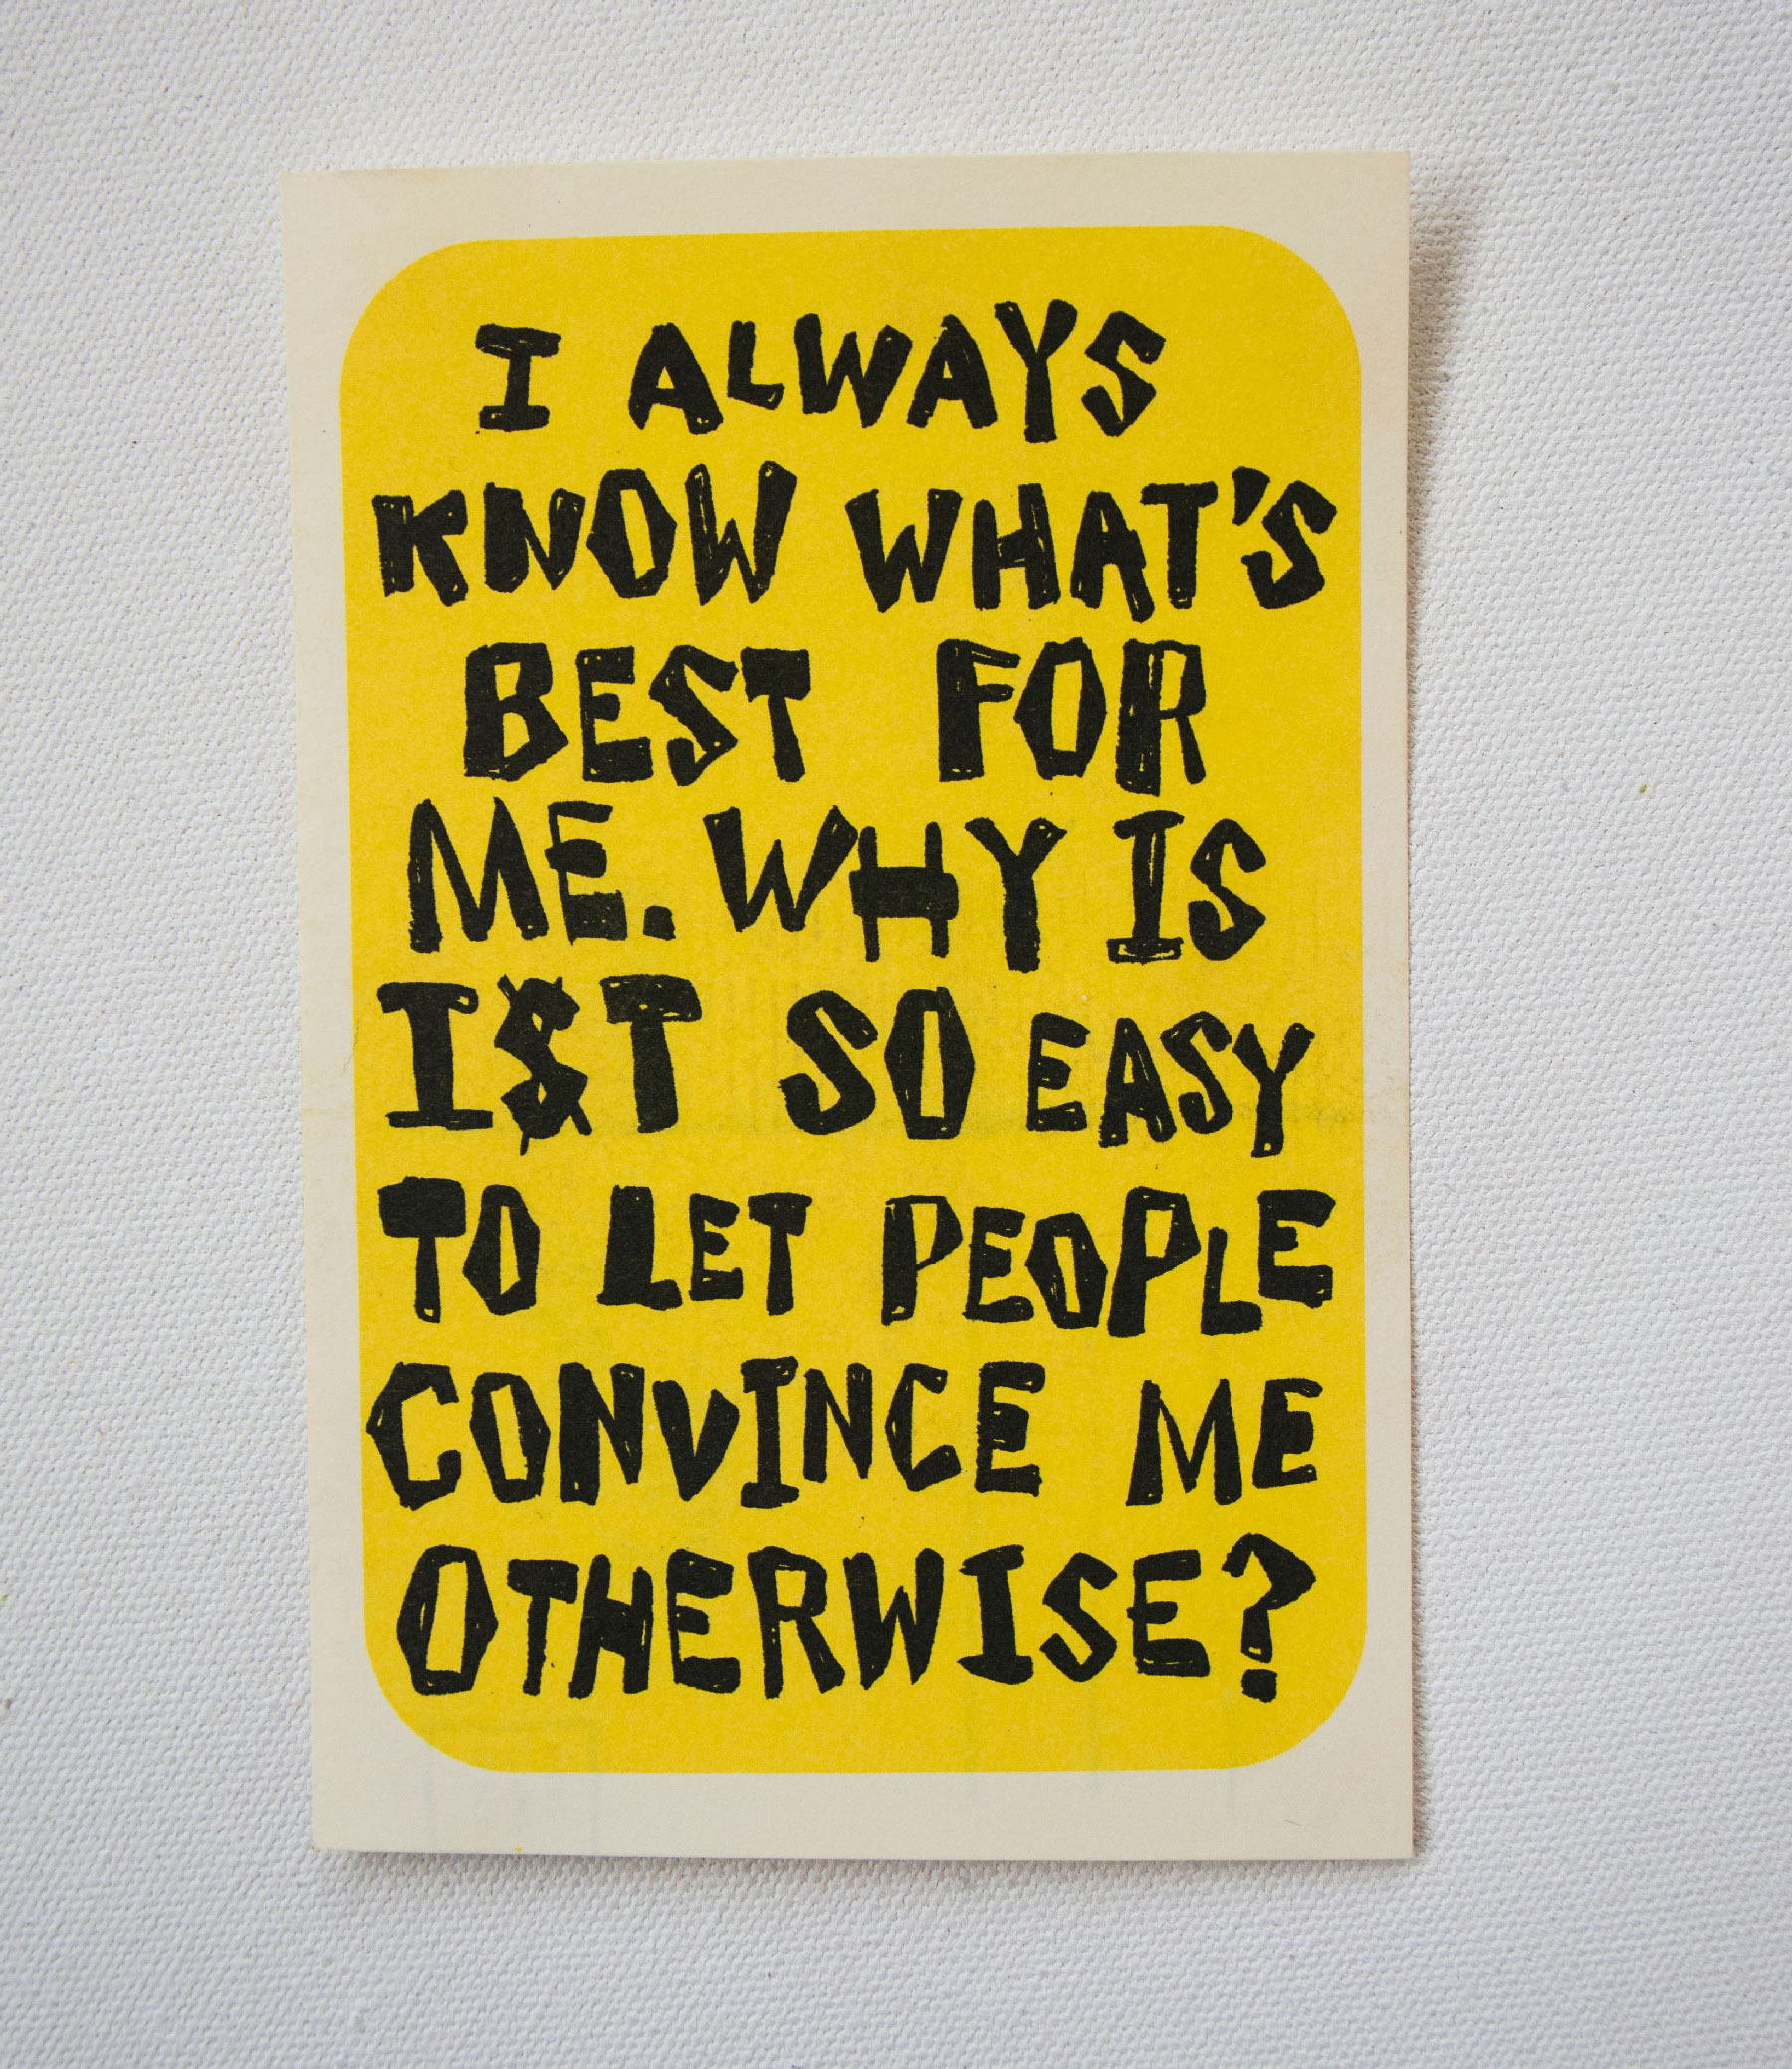 I ALWAYS
KNOW WHAT'S
BEST FOR
ME. WHY IS
IST SO EASY
TO LET PEOPLE
CONVINCE ME
OTHERWISE?